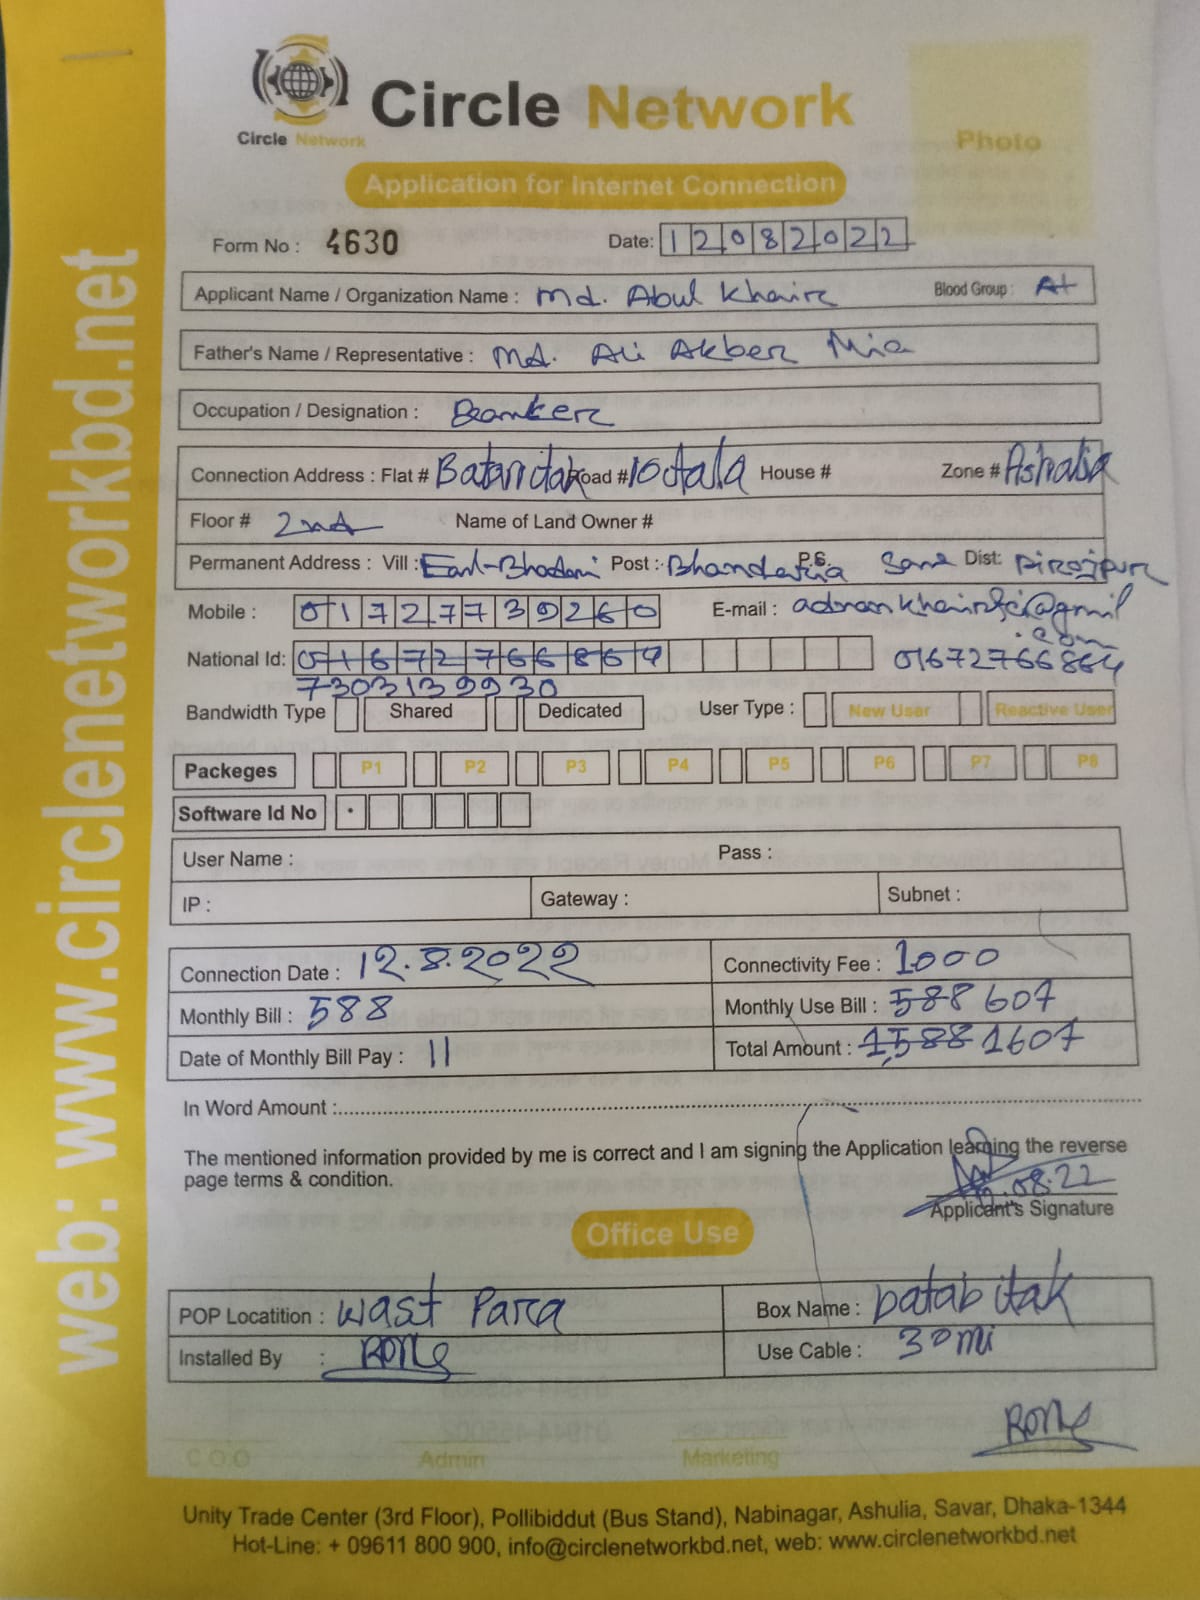 Circle Network
Circle Network
Photo
Application for Internet Connection
Form No : 4630
Date: 12082022
Applicant Name / Organization Name : Md. Abul Khair Blood Group : A+
Father's Name / Representative : Md. Ali Akber Mia
Occupation / Designation : Banker
Connection Address : Flat # Road # 10 tala House # Zone # Ashulia
Floor # 2nd Name of Land Owner #
Permanent Address : Vill : Post : Bhandaria P.S. Same Dist: Pirojpur
Mobile : 01727739260 E-mail :
.com
National Id: 01672766864 01672766864
7303139930
Bandwidth Type Shared Dedicated User Type : New User Reactive User
Packeges P1 P2 P3 P4 P5 P6 P7 P8
Software Id No
User Name : Pass :
IP : Gateway : Subnet :
Connection Date : 12.8.2022 Connectivity Fee : 1000
Monthly Bill : 588 Monthly Use Bill : 588 607
Date of Monthly Bill Pay : 11 Total Amount : 1588 1607
In Word Amount :
The mentioned information provided by me is correct and I am signing the Application learning the reverse
page terms & condition.
.08.22
Applicant's Signature
Office Use
POP Locatition : Wast Para Box Name : batabitak
Installed By : Use Cable : 30 mi
C O O Admin Marketing
Unity Trade Center (3rd Floor), Pollibiddut (Bus Stand), Nabinagar, Ashulia, Savar, Dhaka-1344
Hot-Line: + 09611 800 900, info@circlenetworkbd.net, web: www.circlenetworkbd.net
web: www.circlenetworkbd.net